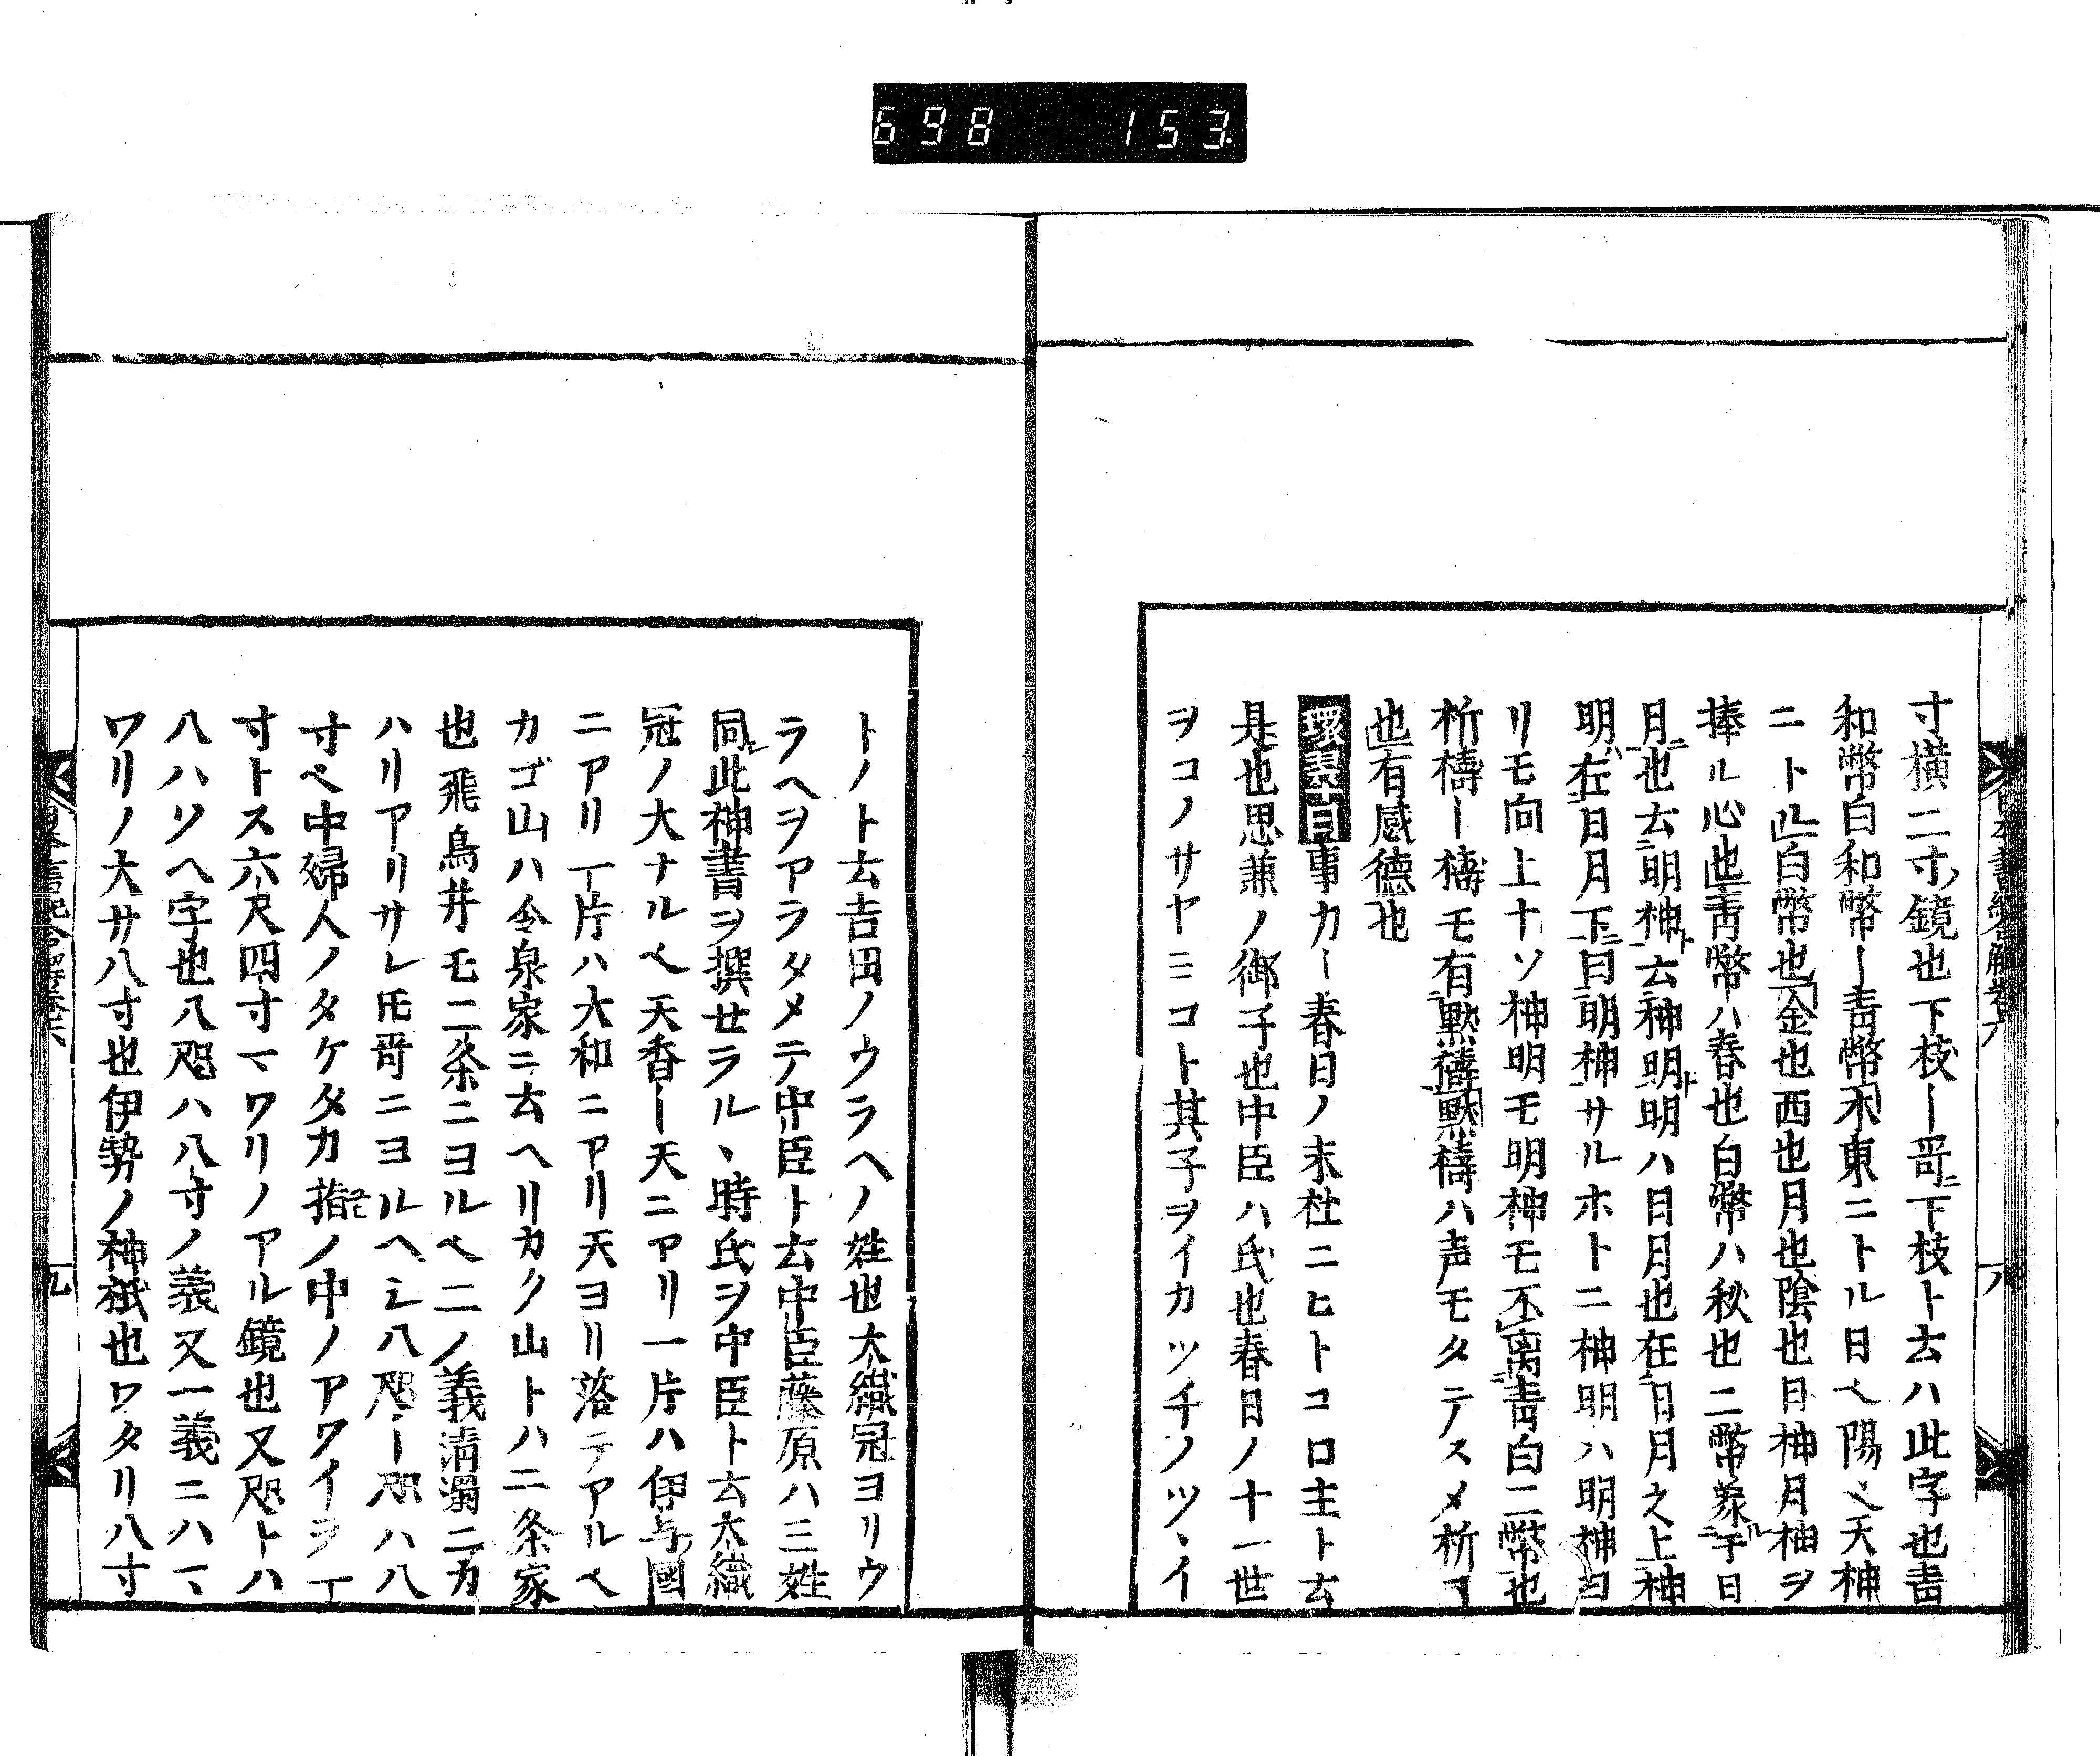 698 153
寸横二寸鏡也下枝ー哥ニ下枝ト云ハ此字也青
和幣白和幣ー青幣木東ニトル日ヘ陽ヘ天神
ニトル白幣也金也西也月也陰也日神月神ヲ
捧ル心也青幣ハ春也白幣ハ秋也二幣象ル于日
月也云明神ト云神明ト明ハ日月也在日月之上神
明在日月下曰明神サルホトニ神明ハ明神ヨ
リモ向上ナソ神明モ明神モ不离青白二幣也
祈檮ー檮モ有黙禱黙禱ハ声モタテスメ祈ヿ
也有感德也
環翠曰事カー春日ノ末社ニヒトコロ主ト云
是也思兼ノ御子也中臣ハ氏也春日ノ十一世
ヲコノサヤミコト其子ヲイカツチノツヽイ
トノト云吉田ノウラヘノ姓也大織冠ヨリウ
ラヘヲアラタメテ中臣ト云中臣藤原ハ三姓
同此神書ヲ撰せラルヽ時氏ヲ中臣ト云大織
冠ノ大ナルヘ天香ー天ニアリ一片ハ伊与國
ニアリ一片ハ大和ニアリ天ヨリ落テアルヘ
カゴ山ハ令泉家ニ云ヘリカク山トハ二条家
也飛鳥井モ二条ニヨルヘ二ノ義清濁ニカ
ハリアリサレ圧哥ニヨルヘシ八咫ー咫ハ八
寸ヘ中婦人ノタケタカ指ノ中ノアワイヲ一
寸トス六尺四寸マワリノアル鏡也又咫トハ
八ハソヘ字也八咫ハ八寸ノ義又一義ニハマ
ワリノ大サ八寸也伊勢ノ神祇也ワタリ八寸
日本書紀合解巻六
八
九